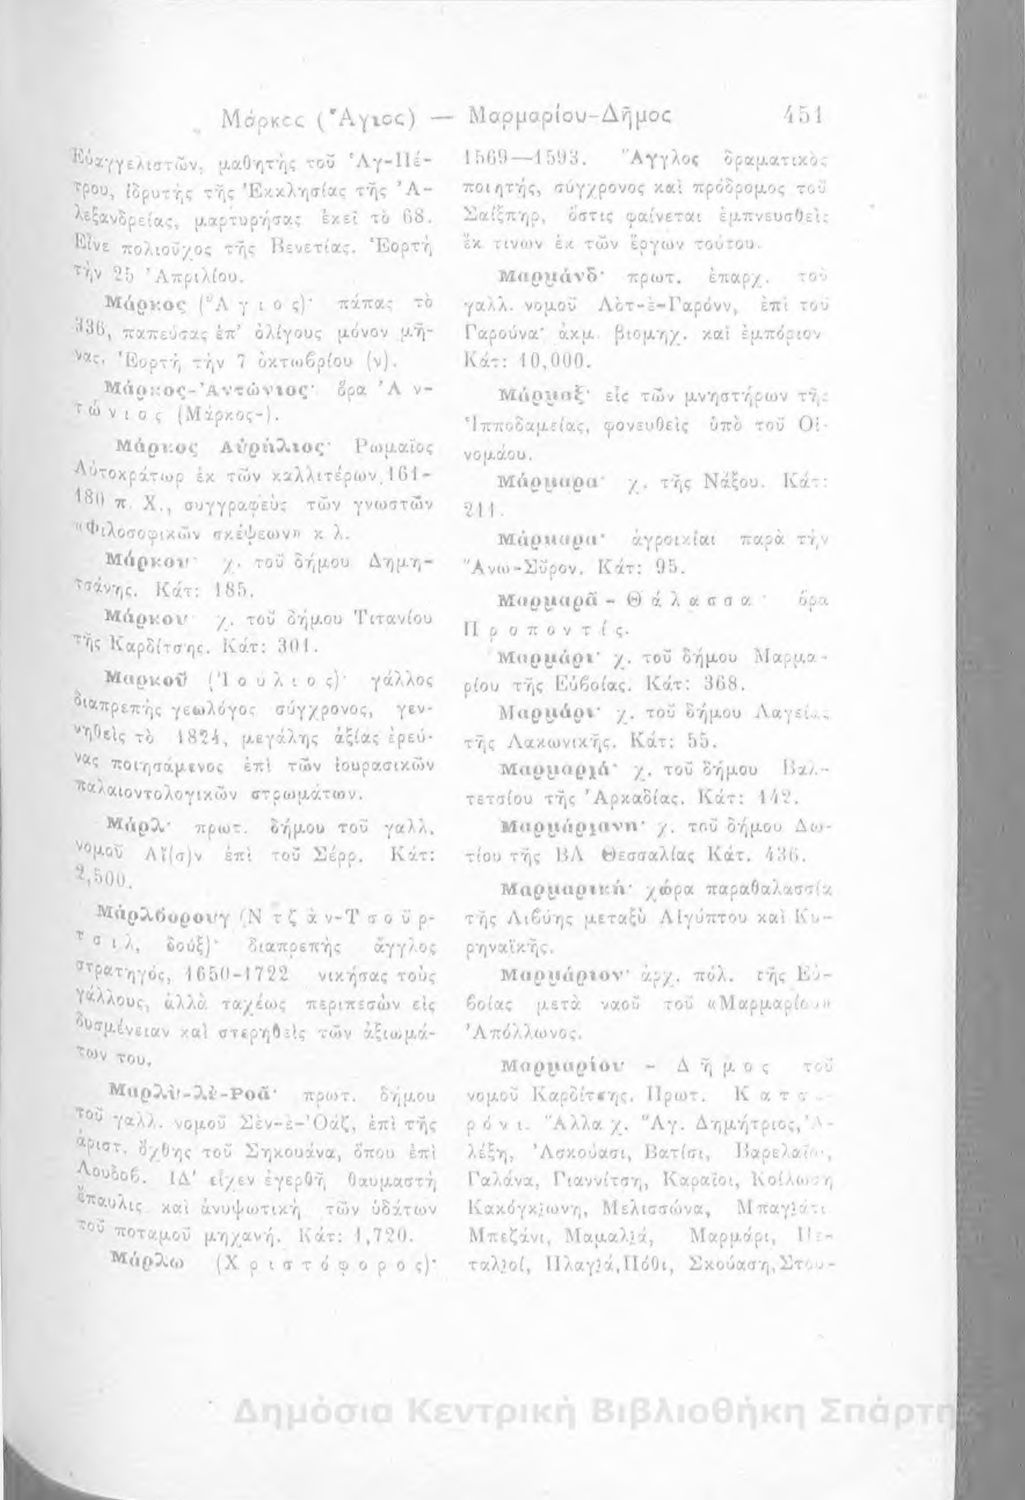 Μάρκος (Ἅγιος) — Μαρμαρίου-Δῆμος 451
Εὐαγγελιστῶν, μαθητὴς τοῦ Ἁγ-Πέ-
τρου, ἱδρυτὴς τῆς Ἐκκλησίας τῆς Ἀ-
λεξανδρείας, μαρτυρήσας ἐκεῖ τὸ 68.
Εἶνε πολιοῦχος τῆς Βενετίας. Ἑορτὴ
τὴν 25 Ἀπριλίου.
Μάρκος (Ἅγιος)· πάπας τὸ
336, παπεύσας ἐπ’ ὀλίγους μόνον μῆ-
νας. Ἑορτὴ τὴν 7 ὀκτωβρίου (ν).
Μάρκος-Ἀντώνιος· ὅρα Ἀν-
τώνιος (Μάρκος-).
Μάρκος Αὐρήλιος· Ρωμαῖος
Αὐτοκράτωρ ἐκ τῶν καλλιτέρων, 161-
180 π. Χ., συγγραφεὺς τῶν γνωστῶν
«Φιλοσοφικῶν σκέψεων» κ λ.
Μάρκου· χ. τοῦ δήμου Δημη-
τσάνης. Κάτ: 185.
Μάρκου· χ. τοῦ δήμου Τιτανίου
τῆς Καρδίτσης. Κάτ: 301.
Μαρκοῦ (Ἰούλιος)· γάλλος
διαπρεπὴς γεωλόγος σύγχρονος, γεν-
νηθεὶς τὸ 1824, μεγάλης ἀξίας ἐρεύ-
νας ποιησάμενος ἐπὶ τῶν ἰουρασικῶν
παλαιοντολογικῶν στρωμάτων.
Μάρλ· πρωτ. δήμου τοῦ γαλλ.
νομοῦ Αἴ(σ)ν ἐπὶ τοῦ Σέρρ. Κάτ:
2,500.
Μάρλβορουγ (Ντζὰν-Τσοῦρ-
τσιλ, δούξ)· διαπρεπὴς ἄγγλος
στρατηγός, 1650-1722 νικήσας τοὺς
γάλλους, ἀλλὰ ταχέως περιπεσὼν εἰς
δυσμένειαν καὶ στερηθεὶς τῶν ἀξιωμά-
των του.
Μαρλὺ-λὲ-Ροᾶ· πρωτ. δήμου
τοῦ γαλλ. νομοῦ Σὲν-ὲ-Ὀάζ, ἐπὶ τῆς
ἀριστ. ὄχθης τοῦ Σηκουάνα, ὅπου ἐπὶ
Λουδοβ. ΙΔ’ εἶχεν ἐγερθῆ θαυμαστὴ
ἔπαυλις καὶ ἀνυψωτικὴ τῶν ὑδάτων
τοῦ ποταμοῦ μηχανή. Κάτ: 1,720.
Μάρλω (Χριστόφορος)·
1569—1593. Ἄγγλος δραματικὸς
ποιητής, σύγχρονος καὶ πρόδρομος τοῦ
Σαίξπηρ, ὅστις φαίνεται ἐμπνευσθεὶς
ἔκ τινων ἐκ τῶν ἔργων τούτου.
Μαρμάνδ· πρωτ. ἐπαρχ. τοῦ
γαλλ. νομοῦ Λὸτ-ὲ-Γαρόνν, ἐπὶ τοῦ
Γαρούνα· ἀκμ. βιομηχ. καὶ ἐμπόριον
Κάτ: 10,000.
Μάρμαξ· εἷς τῶν μνηστήρων τῆς
Ἱπποδαμείας, φονευθεὶς ὑπὸ τοῦ Οἰ-
νομάου.
Μάρμαρα· χ. τῆς Νάξου. Κάτ:
211.
Μάρμαρα· ἀγροικίαι παρὰ τὴν
Ἄνω-Σῦρον. Κάτ: 95.
Μαρμαρᾶ-Θάλασσα· ὅρα
Προποντίς.
Μαρμάρι· χ. τοῦ δήμου Μαρμα-
ρίου τῆς Εὐβοίας. Κάτ: 368.
Μαρμάρι· χ. τοῦ δήμου Λαγείας
τῆς Λακωνικῆς. Κάτ: 55.
Μαρμαριά· χ. τοῦ δήμου Βαλ-
τετσίου τῆς Ἀρκαδίας. Κάτ: 142.
Μαρμάριανη· χ. τοῦ δήμου Δω-
τίου τῆς ΒΑ Θεσσαλίας Κάτ. 436.
Μαρμαρική· χώρα παραθαλασσία
τῆς Λιβύης μεταξὺ Αἰγύπτου καὶ Κυ-
ρηναϊκῆς.
Μαρμάριον· ἀρχ. πόλ. τῆς Εὐ-
βοίας μετὰ ναοῦ τοῦ «Μαρμαρίου»
Ἀπόλλωνος.
Μαρμαρίου - Δῆμος τοῦ
νομοῦ Καρδίτσης. Πρωτ.
ρόνι. Ἄλλα χ. Ἅγ. Δημήτριος, Ἀ-
λέξη, Ἀσκούασι, Βατίσι,
Γαλάνα, Γιαννίτση, Καραῖοι,
Κακόγκιωνη, Μελισσώνα, Μπαγιάτι
Μπεζάνι, Μαμαλιά, Μαρμάρι, Πε-
ταλιοί, Πλαγιά, Πόθι, Σκούαση, Στου-
Δημόσια Κεντρική Βιβλιοθήκη Σπάρτη